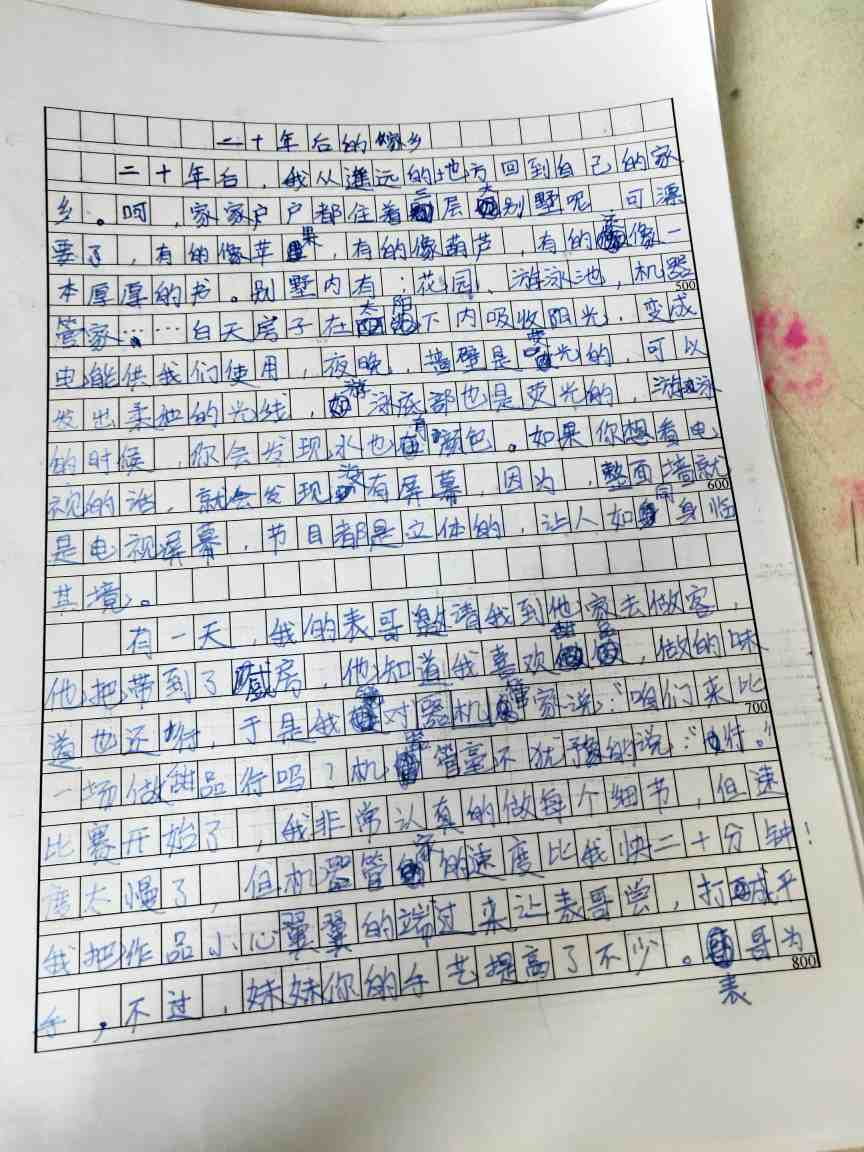 二十年后的家乡
二十年后，我从遥远的地方回到自己的家
乡。呵，家家户户都住着三层大别墅呢，可漂
要了，有的像苹果，有的像葫芦，有的像一
本厚厚的书。别墅内有：花园、游泳池，机器
500
管家……白天房子在太阳下内吸收阳光，变成
电能供我们使用，夜晚，墙壁是荧光的，可以
发出柔和的光线，游泳底部也是荧光的，游泳
的时候，你会发现水也有颜色。如果你想看电
视的话，就会发现没有屏幕，因为，整面墙就
600
是电视屏幕，节目都是立体的，让人如同身临
其境。
有一天，我的表哥邀请我到他家去做客，
他把带到了厨房，他知道我喜欢甜品，做的味
道也还行，于是我对器机管家说：“咱们来比
700
一场做甜品行吗？机器管毫不犹豫的说：“行。”
比赛开始了，我非常认真的做每个细节，但速
度太慢了，但机器管家的速度比我快二十分钟！
我把作品小心翼翼的端过来让表哥尝，打成平
手，不过，妹妹你的手艺提高了不少。表哥为
800